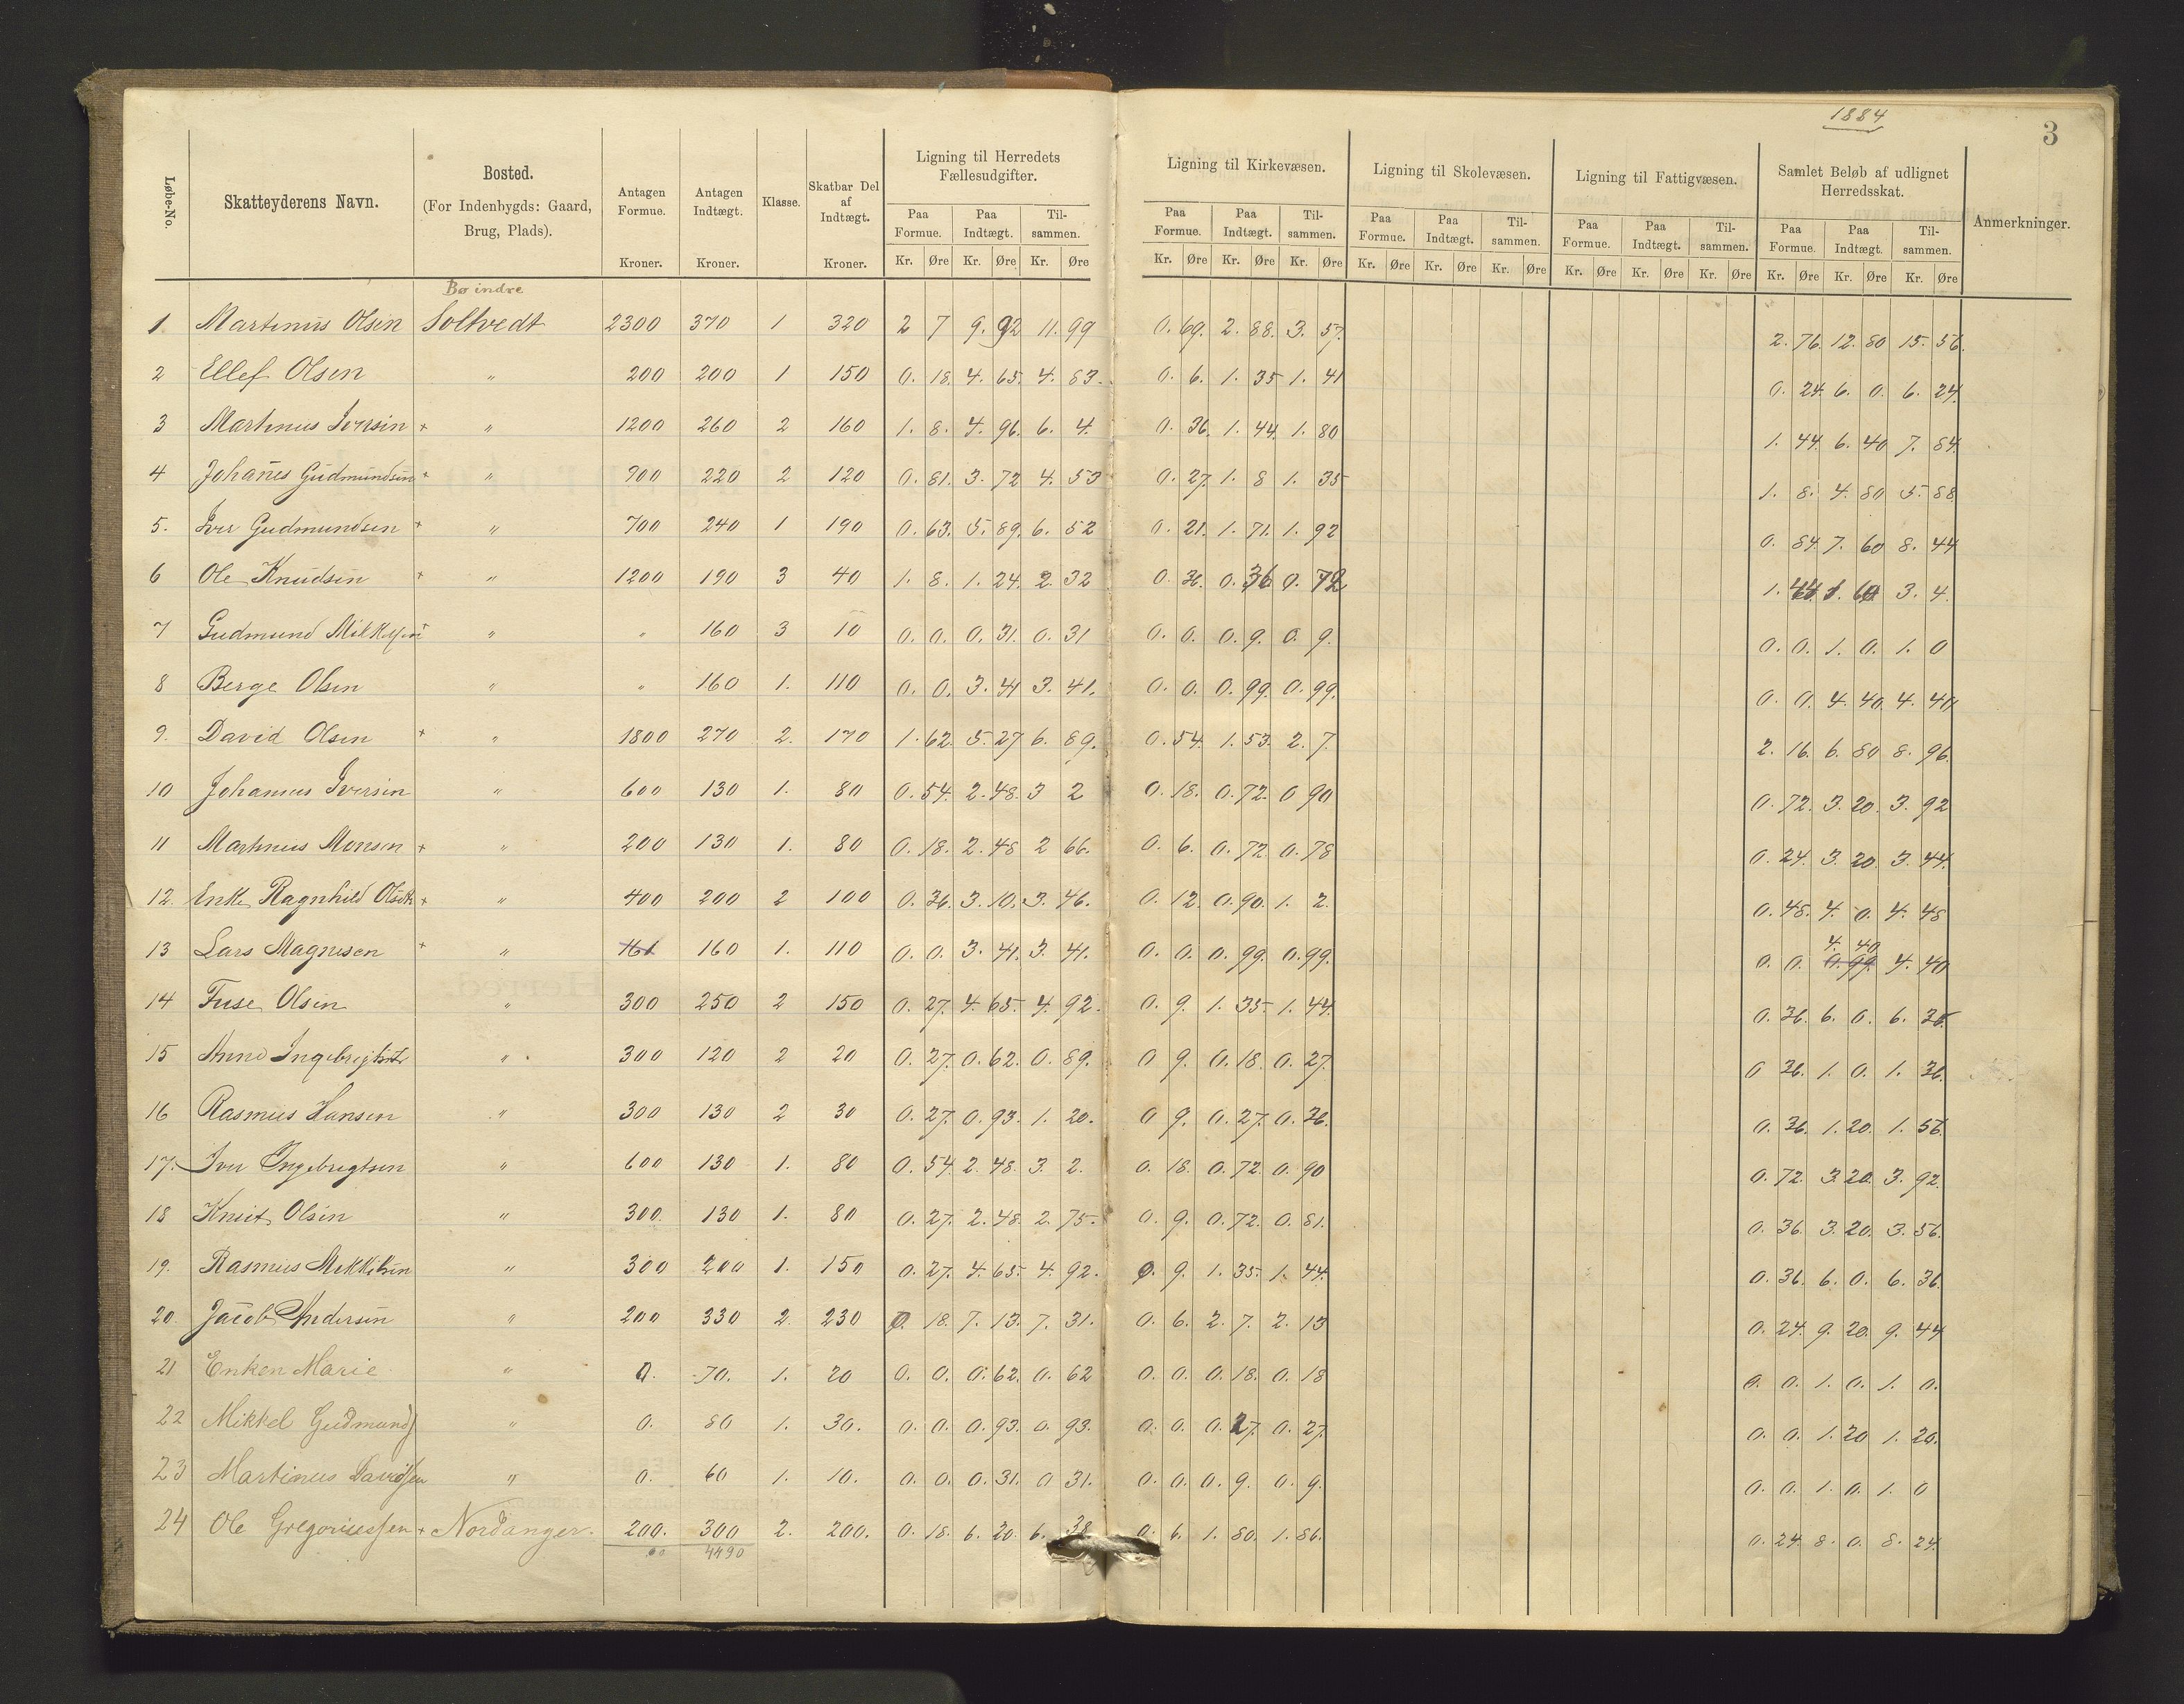 1884
3
Løbe-No. Skatteyderens Navn. Bosted. (For Indenbygds: Gaard, Brug, Plads). Antagen Formue. Antagen Indtægt. Klasse. Skatbar Del af Indtægt. Ligning til Herredets Fællesudgifter. Ligning til Kirkevæsen. Ligning til Skolevæsen. Ligning til Fattigvæsen. Samlet Beløb af udlignet Herredsskat. Anmerkninger.
Paa Formue. Paa Indtægt. Til- sammen. Paa Formue. Paa Indtægt. Til- sammen. Paa Formue. Paa Indtægt. Til- sammen. Paa Formue. Paa Indtægt. Til- sammen. Paa Formue. Paa Indtægt. Til- sammen.
Kroner. Kroner. Kroner. Kr. Øre Kr. Øre Kr. Øre Kr. Øre Kr. Øre Kr. Øre Kr. Øre Kr. Øre Kr. Øre Kr. Øre Kr. Øre Kr. Øre Kr. Øre Kr. Øre Kr. Øre
Bø indre
1. Martinus Olsen Soltvedt 2300 370 1 320 2 7 9. 92 11. 99 0. 69. 2. 88. 3. 57. 2. 76. 12. 80 15. 56.
2 Ellef Olsen " 200 200 1 150 0. 18. 4. 65. 4. 83. 0. 6. 1. 35 1. 41 0. 24. 6. 0. 6. 24.
3 Martinus Iversen + " 1200 260 2 160 1. 8. 4. 96. 6. 4. 0. 36. 1. 44. 1. 80 1. 44. 6. 40 7. 84.
4 Johanes Gudmundsen + " 900 220 2 120 0. 81. 3. 72 4. 53 0. 27. 1. 8 1. 35 1. 8. 4. 80 5. 88
5. Iver Gudmundsen + " 700 240 1 190 0. 63. 5. 89. 6. 52 0. 21. 1. 71. 1. 92 0. 84. 7. 60 8. 44
6 Ole Knudsen + " 1200 190 3 40 1. 8. 1. 24. 2. 32 0. 36. 0. 36 0. 72 1. 44. 1. 60 3. 4.
7 Gudmund Mikkelsen " " 160 3 10 0. 0. 0. 31. 0. 31 0. 0. 0. 9. 0. 9. 0. 0. 1. 0. 1. 0
8 Berge Olsen " " 160 1. 110 0. 0. 3. 41 3. 41. 0. 0. 0. 99. 0. 99. 0. 0. 4. 40. 4. 40
9. David Olsen + " 1800 270 2. 170 1. 62. 5. 27 6. 89. 0. 54. 1. 53. 2. 7. 2. 16. 6. 80 8. 96.
10 Johannes Iversen " 600 130 1. 80 0. 54. 2. 48. 3 2 0. 18. 0. 72. 0 90 0. 72. 3. 20. 3. 92
11 Martinus Monsen + " 200 130 1. 80 0. 18. 2. 48 2 66. 0. 6. 0. 72. 0. 78 0. 24. 3. 20. 3. 44.
12. Enke Ragnhild Olsdt. + " 400 200 2 100 0. 36. 3. 10. 3. 46. 0. 12. 0. 90. 1. 2. 0. 48. 4. 0. 4. 48
13 Lars Magnesen + " 160 1. 110 0. 0. 3. 41. 3. 41. 0. 0. 0. 99. 0. 99. 0. 0. 0. 99. 4. 40 4. 40
14 Fuse Olsen " 300 250 2 150 0. 27. 4. 65. 4. 92. 0. 9. 1. 35. 1. 44. 0. 36. 6. 0. 6. 36.
15 Anne Ingebrigtsdt. " 300 120 2 20 0. 27. 0. 62. 0. 89. 0 9. 0. 18. 0. 27. 0 36. 1. 0. 1. 36.
16 Rasmus Hansen " 300 130 2 30 0. 27. 0. 93. 1. 20. 0 9. 0. 27. 0. 36. 0. 36. 1. 20. 1. 56.
17. Iver Ingebrigtsen " 600 130 1. 80 0. 54. 2. 48. 3. 2. 0. 18. 0. 72. 0. 90 0. 72. 3. 20. 3. 92.
18 Knut Olsen " 300. 130 1. 80 0. 27. 2. 48. 2. 75. 0. 9. 0. 72. 0. 81. 0. 36. 3. 20. 3. 56.
19. Rasmus Mikkelsen " 300 200 1. 150 0. 27. 4. 65. 4. 92. 0. 9. 1. 35. 1. 44. 0. 36. 6. 0. 6. 36
20. Jacob Andersen " 200 330 2. 230 0. 18. 7. 13. 7. 31. 0. 6. 2. 7. 2. 13 0. 24. 9. 20. 9. 44
21 Enken Marie " 0. 70. 1. 20 0. 0. 0. 62. 0. 62 0. 0. 0. 18. 0. 18 0. 0. 1. 0. 1. 0.
22 Mikkel Gudmunds " 0. 80 1. 30. 0. 0. 0. 93. 0. 93. 0. 0. 0. 27. 0. 27. 0. 0. 1. 20 1. 20.
23 Martinus Davidsen " 0. 60 1. 10. 0. 0. 0. 31. 0 31. 0. 0. 0. 9. 0. 9. 0. 0. 1. 0. 1. 0
24 Ole Gregoriussen + Nordanger. 200. 300 2. 200. 0. 18. 6. 20. 6. 38. 0. 6. 1. 80. 1. 86. 0. 24. 8. 0. 8. 24.
4490